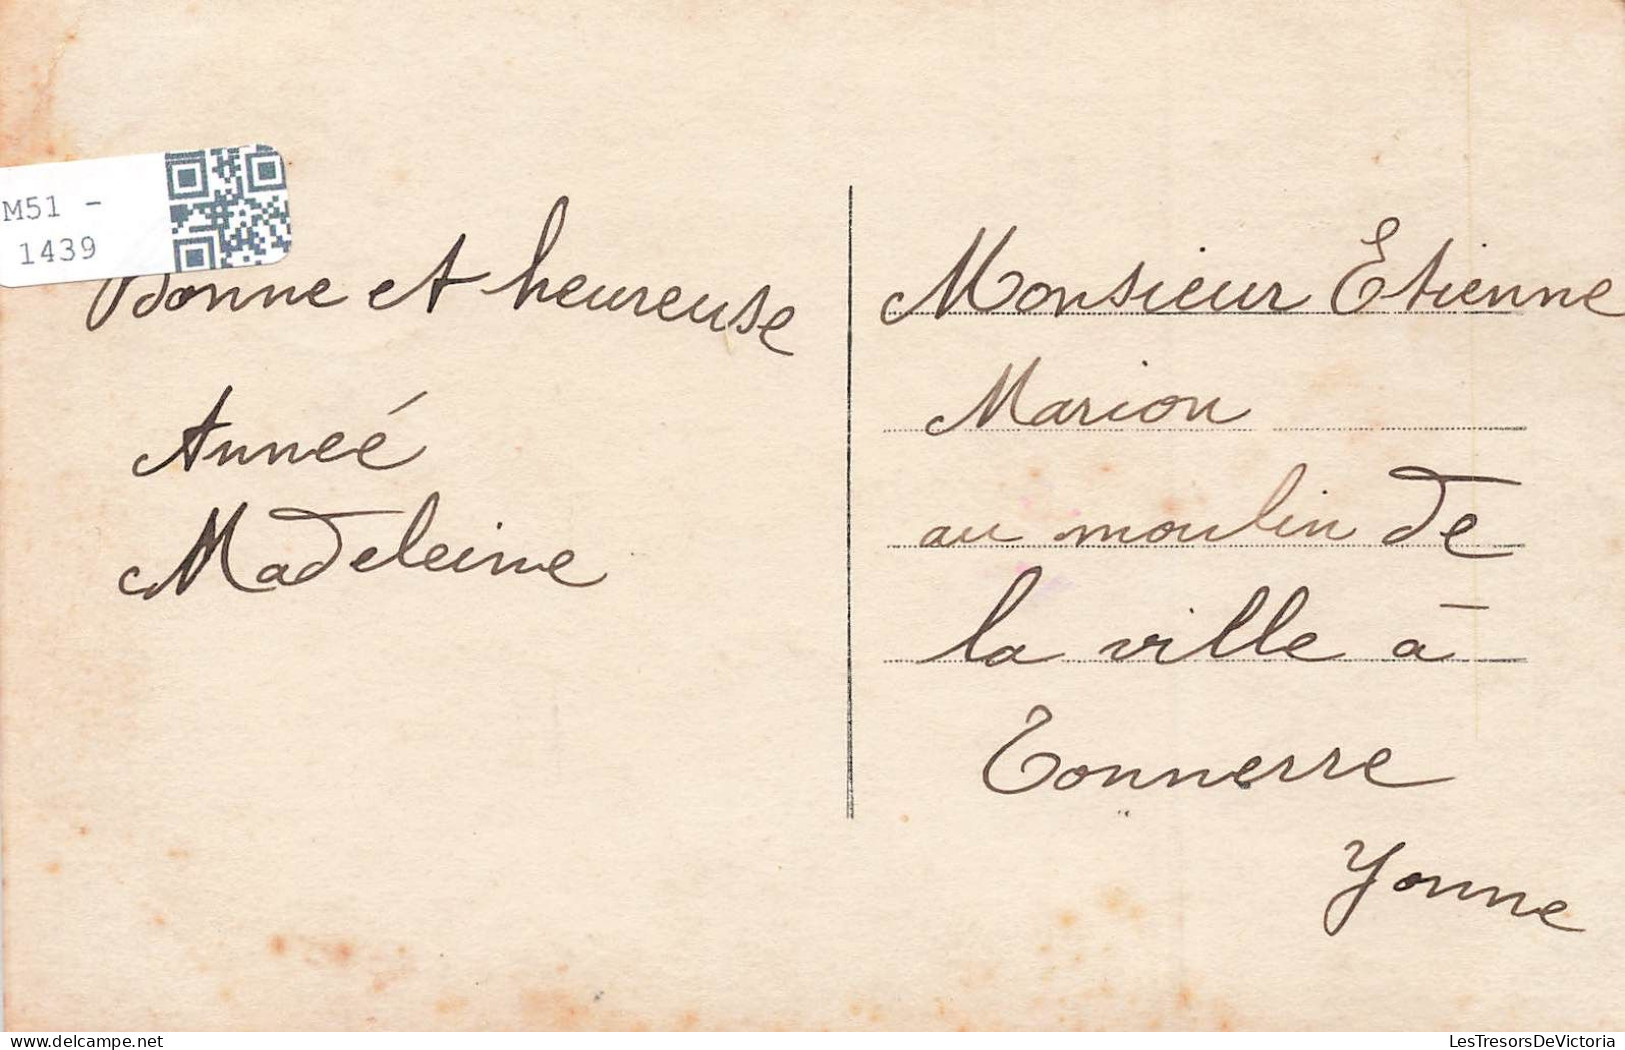 M51 -
1439
Bonne et heureuse
Anneé
Madeleine
Monsieur Etienne
Marion
au moulin de
la ville à
Tonnerre
Yonne
delcampe.net
LesTresorsDeVictoria